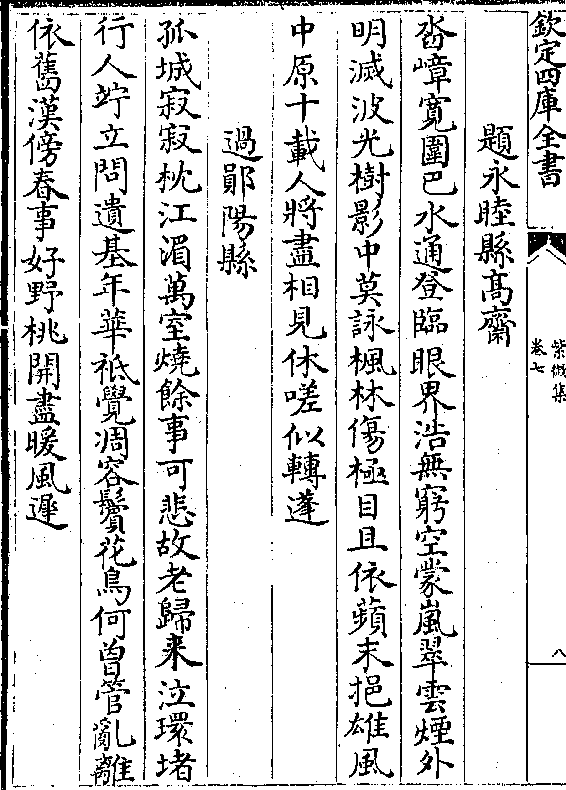 欽定四庫全書
紫微集
卷七
八
題永睦縣高齋
沓嶂寛圍巴水通登臨眼界浩無窮空蒙嵐翠雲煙外
明滅波光樹影中莫詠楓林傷極目且依蘋末挹雄風
中原十載人將盡相見休嗟似轉蓬
過鄖陽縣
孤城寂寂枕江湄萬室燒餘事可悲故老歸来泣環堵
行人竚立問遺基年華祗覺凋容鬢花鳥何曽管亂離
依舊漢傍春事好野桃開盡暖風遲